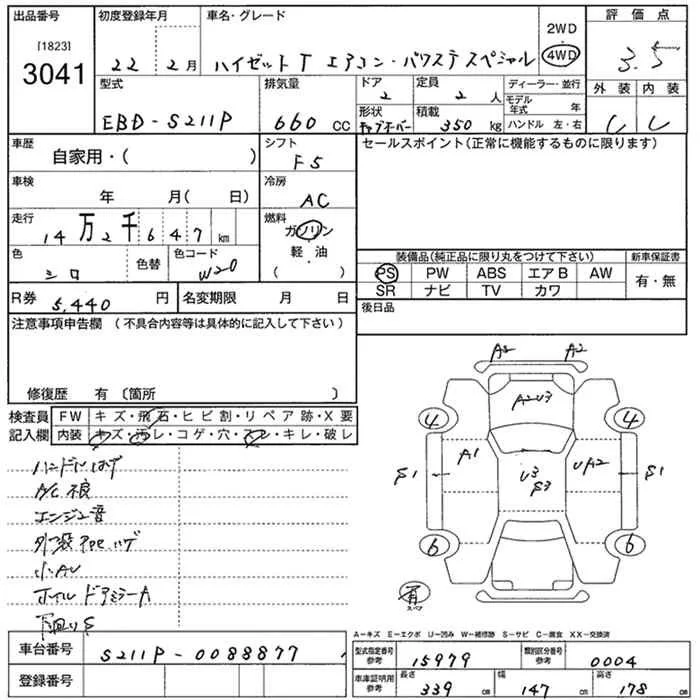 出品番号
[1823]
3041
初度登録年月
22年 2月
車名・グレード
ハイゼットT エアコン・パワステ スペシャル
2WD
4WD
評価点
3.5
外装 内装
型式
EBD-S211P
排気量
660 CC
ドア
2
定員
2 人
形状
積載
350 kg
ディーラー・並行
モデル年式 年
ハンドル 左・右
車歴
自家用・( )
シフト
F5
セールスポイント(正常に機能するものに限ります)
車検
年 月( 日)
冷房
AC
走行
14万2千647 km
燃料
ガソリン
・
軽油
( )
色
シロ
色替
色コード
W20
装備品(純正品に限り丸をつけて下さい)
新車保証書
PS PW ABS エアB AW
SR ナビ TV カワ
有・無
R券 5,440 円
名変期限 月 日
後日品
注意事項申告欄 (不具合内容等は具体的に記入して下さい)
修復歴 有 〔箇所 〕
検査員
記入欄
FW キズ・飛石・ヒビ割・リペア跡・X要
内装 キズ・汚レ・コゲ・穴・スレ・キレ・破レ
ハンドルハゲ
A/C不良
エンジン音
小AU
ホイル ドアミラーA
下回りS
A2
A2U3
4 4
A1
U3
S3
UA2
S1 S1
6 6
有
スペア
A－キズ E－エクボ U－凹み W－補修跡 S－サビ C－腐食 XX－交換済
車台番号
S211P-0088877
登録番号
型式指定番号
参考
15979
類別区分番号
参考
0004
車庫証明用
参考
長さ
339 cm
幅
147 cm
高さ
178 cm